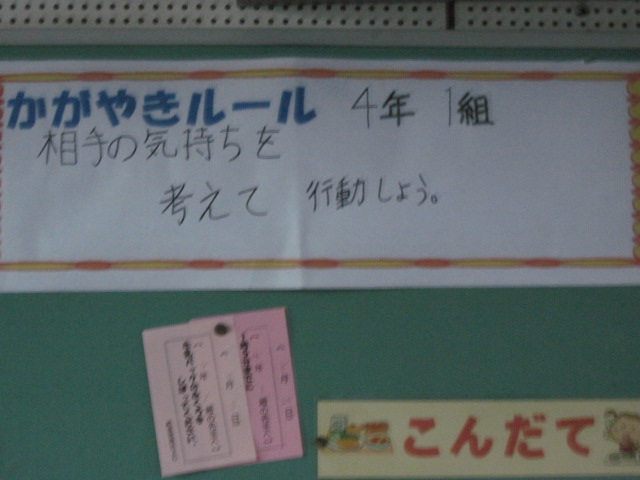 かがやきルール 4年 1組
相手の気持ちを
考えて 行動しよう。
こんだて